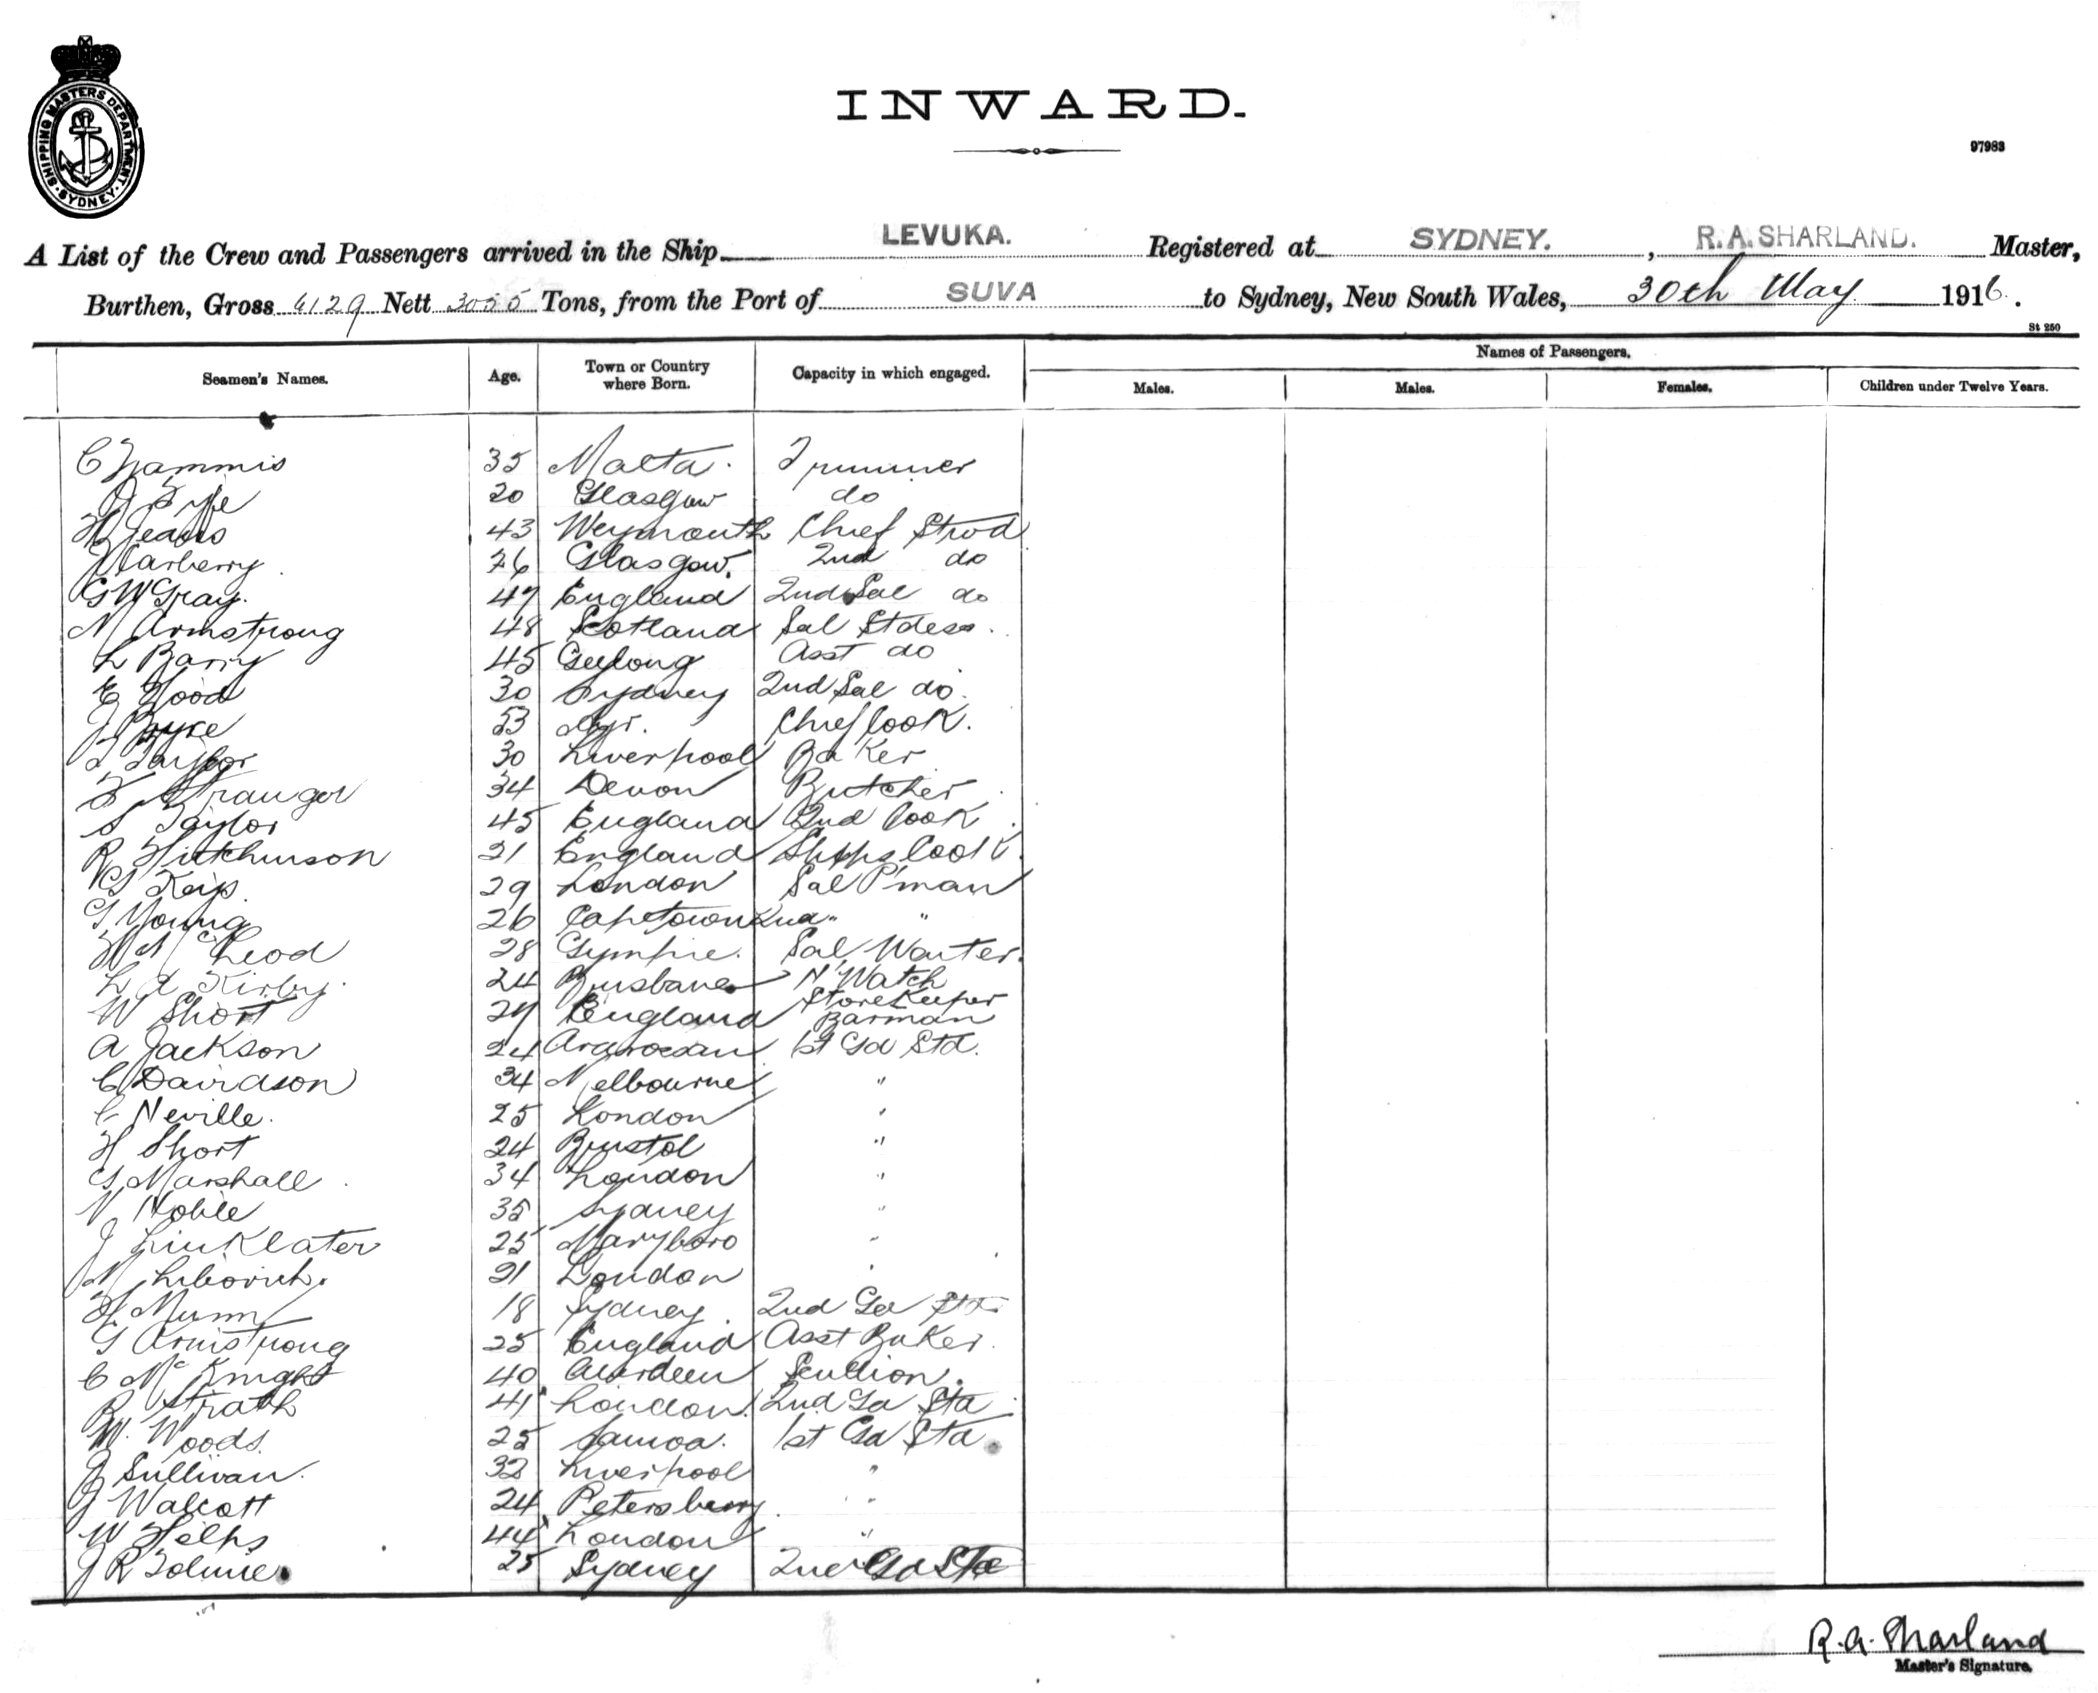 SHIPPING MASTERS DEPARTMENT SYDNEY
INWARD.
97983
A List of the Crew and Passengers arrived in the Ship LEVUKA. Registered at SYDNEY. , R.A. SHARLAND. Master,
Burthen, Gross 6129 Nett 3055 Tons, from the Port of SUVA to Sydney, New South Wales, 30th May 1916.
St 250
Names of Passengers.
Seamen's Names. Age. Town or Country where Born. Capacity in which engaged. Males. Males. Females. Children under Twelve Years.
C Zammis 35 Malta. Trimmer
J Fyfe 20 Glasgow do
H Jeans 43 Weymouth Chief Stwd
J Carberry. 26 Glasgow. 2nd do
G W Gray. 47 England 2nd Sal do
M Armstrong 48 Scotland Sal Stdess.
L Barry 45 Geelong Asst do
E Hood 30 Sydney 2nd Sal do.
J Pyke 53 Ayr. Chief Cook.
Taylor 30 Liverpool Baker
F Stranger 34 Devon Butcher
S Taylor 45 England 2nd Cook
R Hutchinson 21 England Shps Cook
G Keip. 29 London Sal P'man
G Young 26 Capetown 2nd " "
H McLeod 28 Gympie. Sal Waiter.
L A Kirby. 24 Brisbane N'Watch
W Short 27 England Storekeeper Barman
A Jackson 24 1st Gd Std.
C Davidson 34 Melbourne "
C Neville. 25 London "
H Short 24 Bristol "
G Marshall 34 London "
N Noble 35 Sydney "
J Linklater 25 Maryboro "
M Liborich. 21 London "
H Munn 18 Sydney. 2nd Gd Std.
G Armstrong 25 England Asst Baker.
C McKnight 40 Aberdeen Scullion.
R Strath 41 London. 2nd Gd Std
W. Woods. 25 Samoa. 1st Gd Std.
J Sullivan. 32 Liverpool "
J Walcott 24 Petersberry "
W Helps 44 London "
J R Tolmie 25 Sydney 2nd Gd Std
R. A. Sharland
Master's Signature.